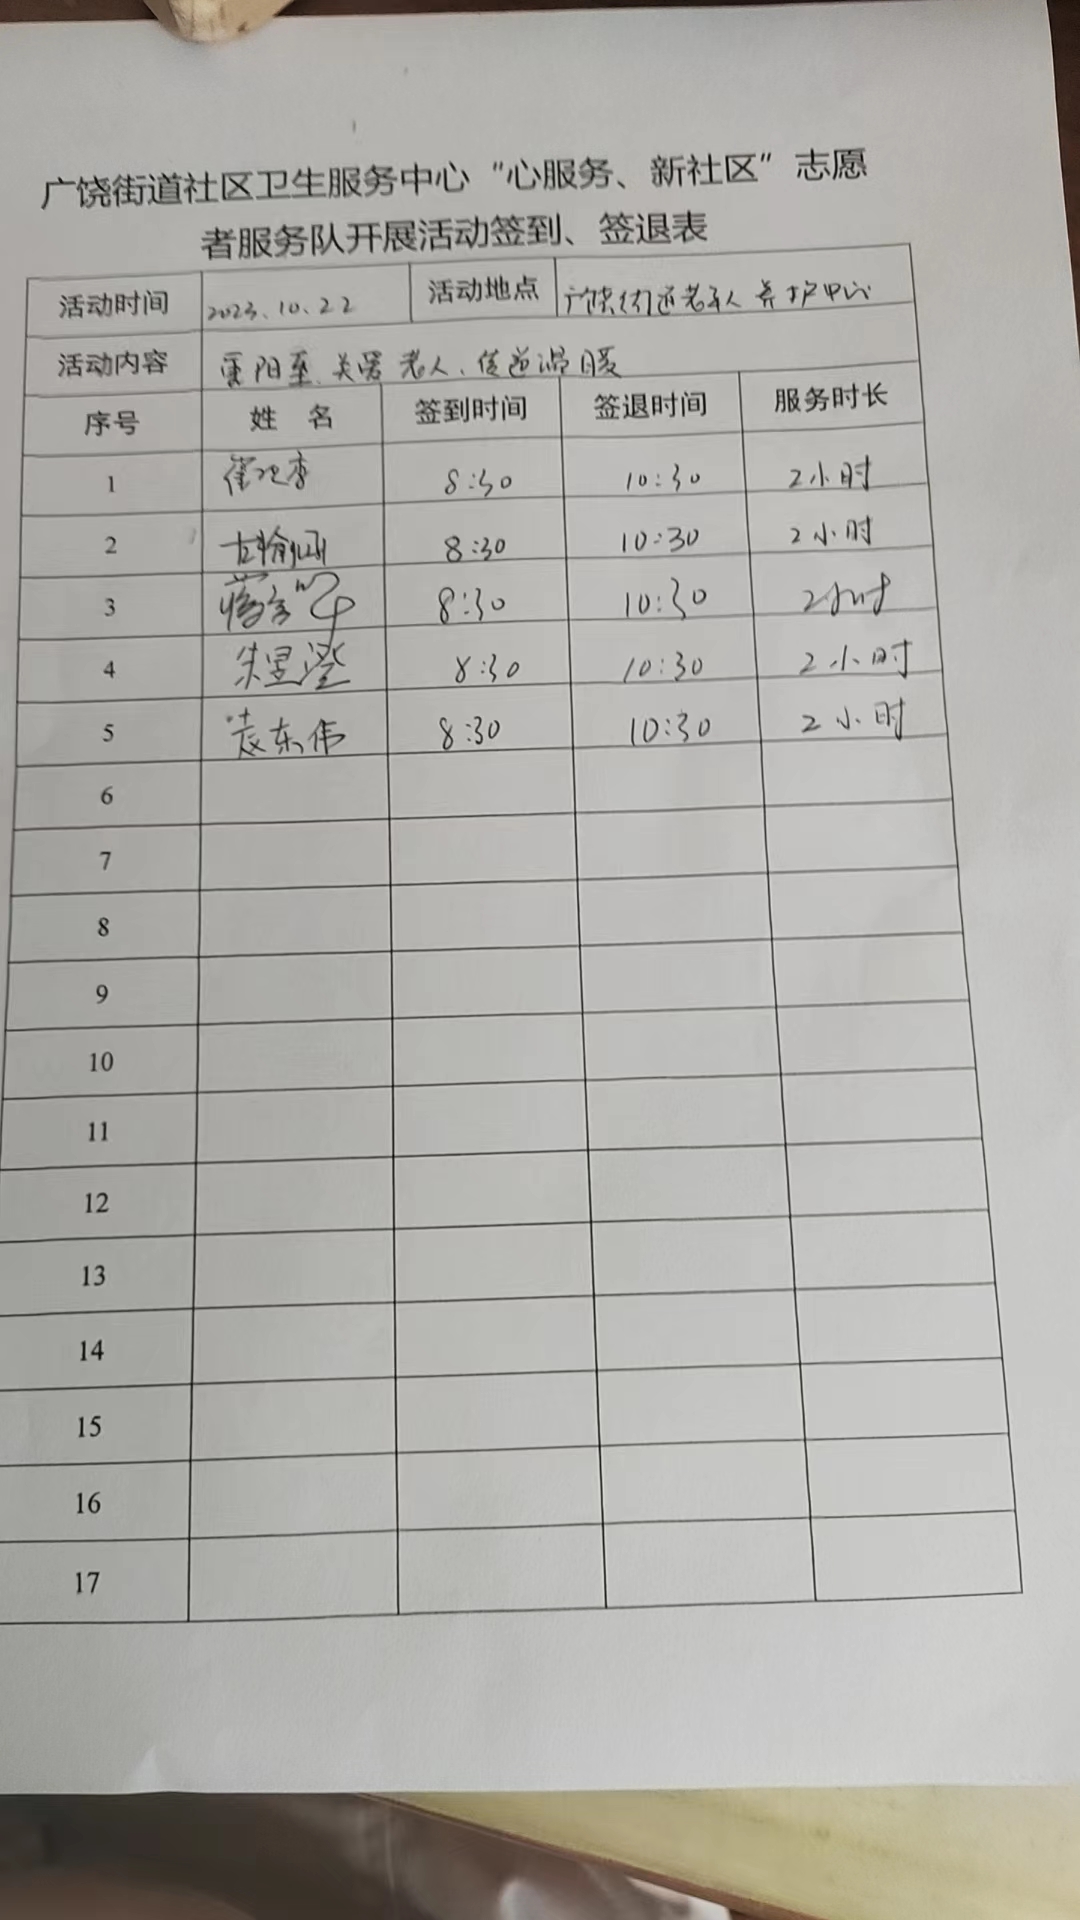 广饶街道社区卫生服务中心“心服务、新社区”志愿
者服务队开展活动签到、签退表
活动时间 2023.10.22 活动地点 广饶街道老年人养护中心
活动内容 重阳至、关爱老人、传递温暖
序号 姓 名 签到时间 签退时间 服务时长
1 8:30 10:30 2小时
2 8:30 10:30 2小时
3 8:30 10:30 2小时
4 朱昱滢 8:30 10:30 2小时
5 袁东伟 8:30 10:30 2小时
6
7
8
9
10
11
12
13
14
15
16
17